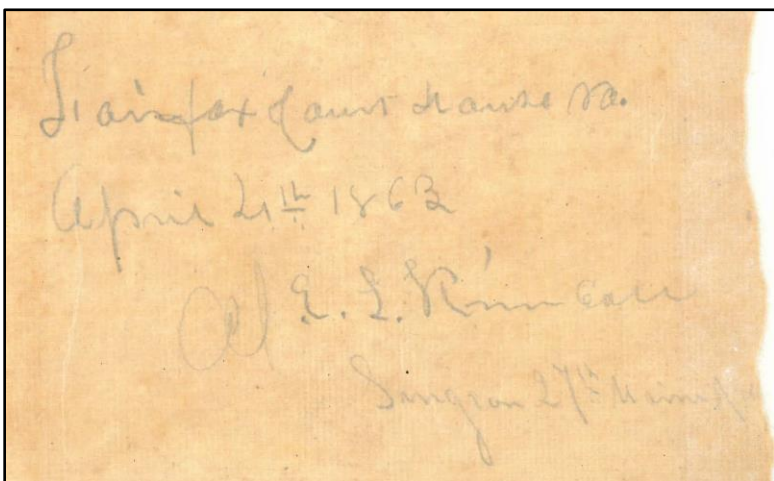 Fairfax Court House Va.
April 21th 1863
E. L. Kimball
Surgeon 27th Maine